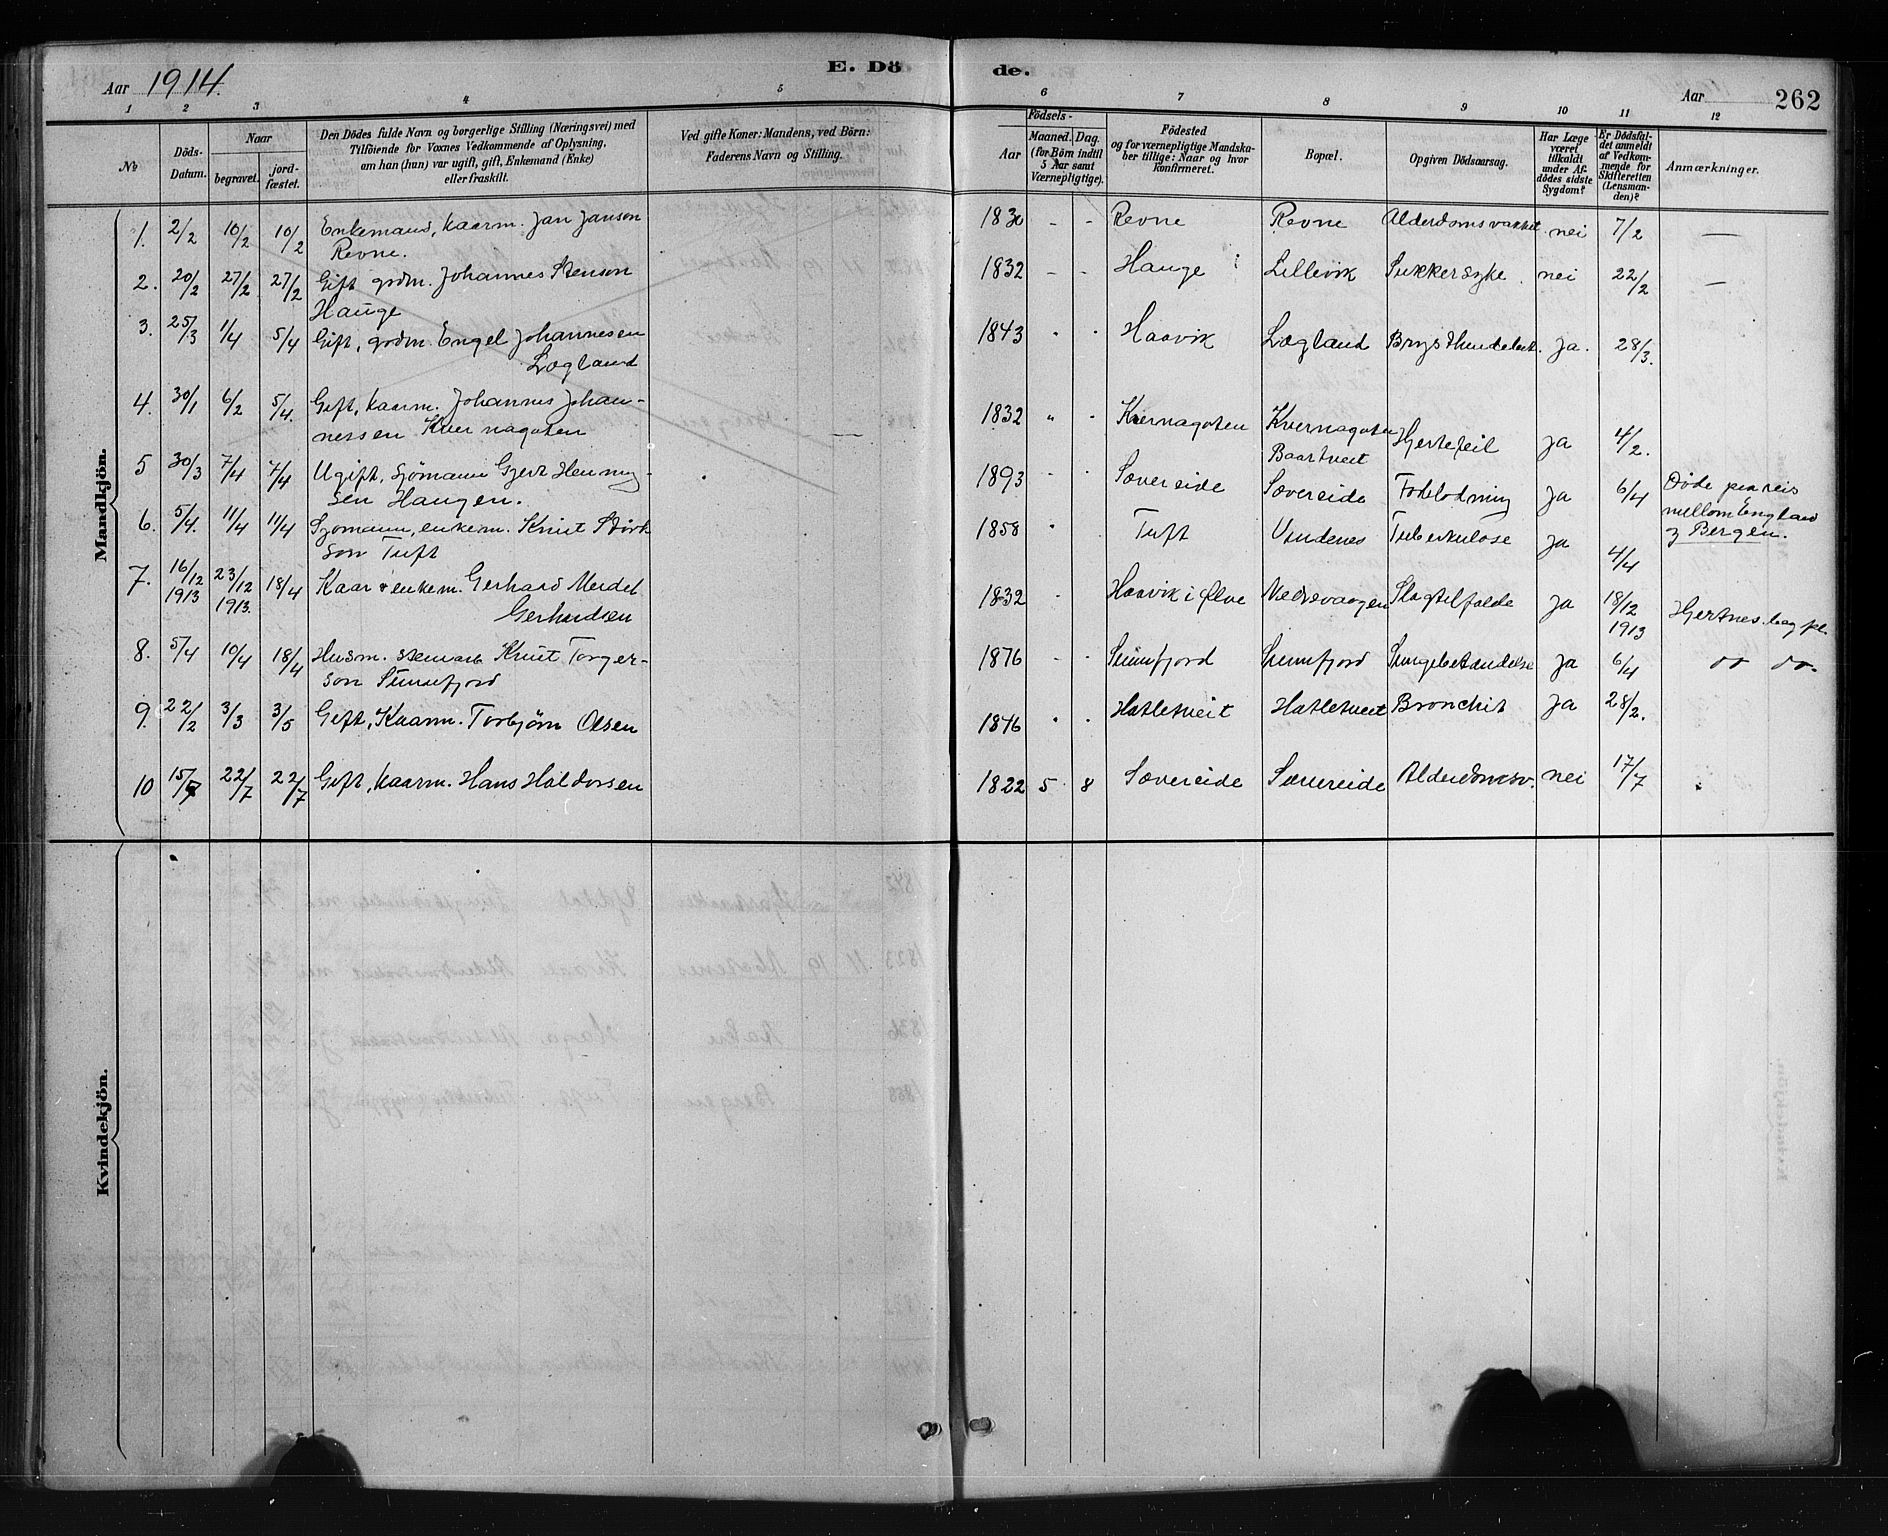 Aar 1914.
E. Dö
de.
Aar
262
1 2 3 4 5 6 7 8 9 10 11 12
No
Döds-
Datum.
Naar
begravet.
jord-
fæstet.
Den Dödes fulde Navn og borgerlige Stilling (Næringsvei) med
Tilföiende for Voxnes Vedkommende af Oplysning,
om han (hun) var ugift, gift, Enkemand (Enke)
eller fraskilt.
Ved gifte Koner: Mandens, ved Börn:
Faderens Navn og Stilling.
Födsels-
Aar
Maaned.
Dag.
(for Börn indtil
5 Aar samt
Værnepligtige).
Födested
og for værnepligtige Mandska-
ber tillige: Naar og hvor
konfirmeret.
Bopæl.
Opgiven Dödsaarsag.
Har Læge
været
tilkaldt
under Af-
dödes sidste
Sygdom?
Er Dödsfal-
det anmeldt
af Vedkom-
mende for
Skifteretten
(Lensman-
den)?
Anmærkninger.
Mandkjön.
1. 2/2 10/2 10/2 Enkemand, kaarm. Jan Janson
Revne.
1830 - - Revne Revne Alderdomssvakhet. nei 7/2 —
2. 20/2 27/2 27/2 Gift grdm. Johannes Stenson
Hauge
1832 - - Hauge Lillevik Sukkersyke. nei 22/2 —
3. 25/3 1/4 5/4 Gift, grdm. Engel Johannesen
Løgland
1843 Haavik Løgland ja. 28/3.
4. 30/1 6/2 5/4. Gift, kaarm. Johannes Johan-
nessen Kvernagoten
1832 " Kvernagoten Kvernagoten
Baartveit Hjertefeil ja 4/2.
5 30/3 7/4 7/4 Ugift, sjömann Gjert Henning-
sen Haugen.
1893 Sævereide Sævereide Fodblodning ja 6/4 Døde paa reis
mellom England
og Bergen.
6. 5/4. 11/4 11/4 Sjomann, enkem. Knut Størk
son Tuft
1858 Tuft Vindenes Tuberkulose ja 4/4
7. 16/12 1913 23/12 1913. 18/4 Kaar & enkem. Gerhard Meidel
Gerhardsen
1832 Haavik i Ølve Nedrevaagen Slagtilfælde ja 18/12 1913 Hjertnes.
8. 5/4 10/4 18/4 Husm. stenarb Knut Torger-
son Sunnfjord
1876 - - Sunnfjord Sunnfjord Lungebetændelse ja 6/4 do do.
9. 22/2 3/3 3/5 Gift, Kaarm. Torbjørn Olsen
1846 Hatletveit Hatletveit Bronchit ja 28/2.
10 15/7 22/7 22/7 Gift, kaarm. Hans Haldorsen
1822 5 8 Sævereide Sævereide Alderdomssv. nei 17/7
Kvindekjön.